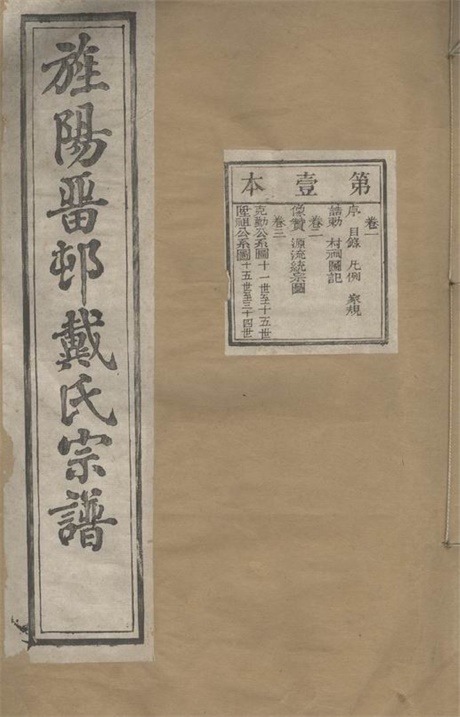 旌陽畱邨戴氏宗譜
第壹本
卷一
序 目錄 凡例 家規
誥勅 村祠圖記
卷二
像贊 源流統宗圖
卷三
克勤公系圖十一世至十五世
公系圖十五世至三十四世